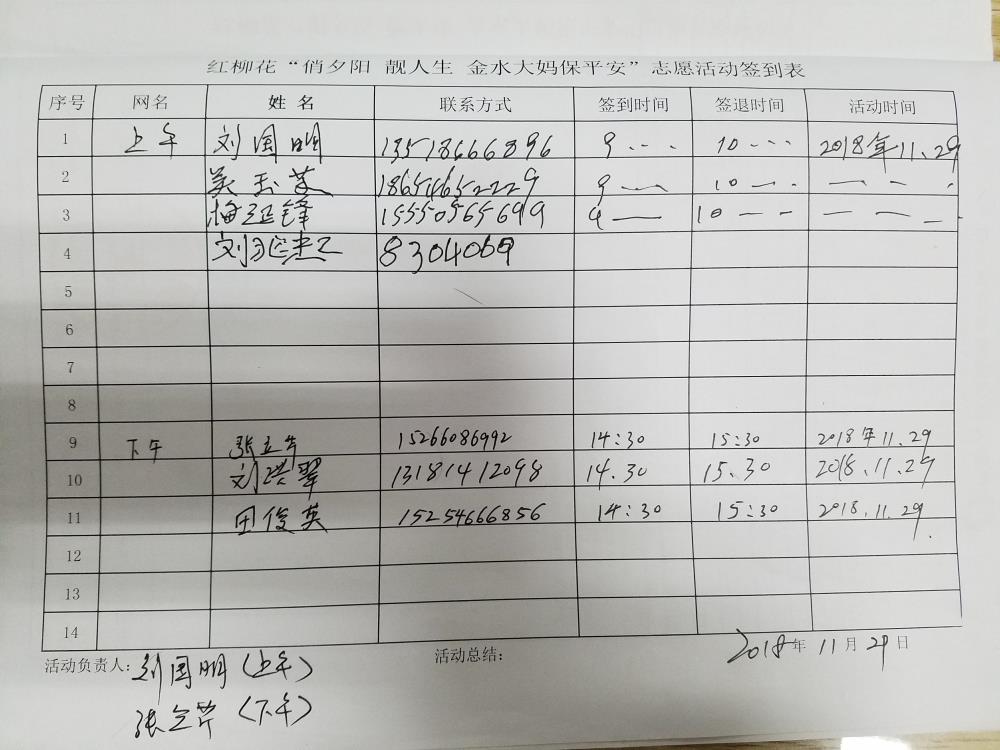 红柳花“俏夕阳 靓人生 金水大妈保平安”志愿活动签到表
序号 网名 姓名 联系方式 签到时间 签退时间 活动时间
1 上午 刘国明 13518666896 9 --- 10 --- 2018年11.29
2 吴玉英 18654652229 9 —— 10 —-. — - -
3 梅延锋 15550565699 9 — 10 — - — — -
4 8304069
5
6
7
8
9 下午 15266086992 14:30 15:30 2018年11.29
10 刘洪翠 13181412098 14.30 15.30 2018.11.29
11 田俊英 15254666856 14:30 15:30 2018.11.29.
12
13
14
活动负责人: 刘国明(上午) 活动总结: 2018年11月29日
张立芹(下午)